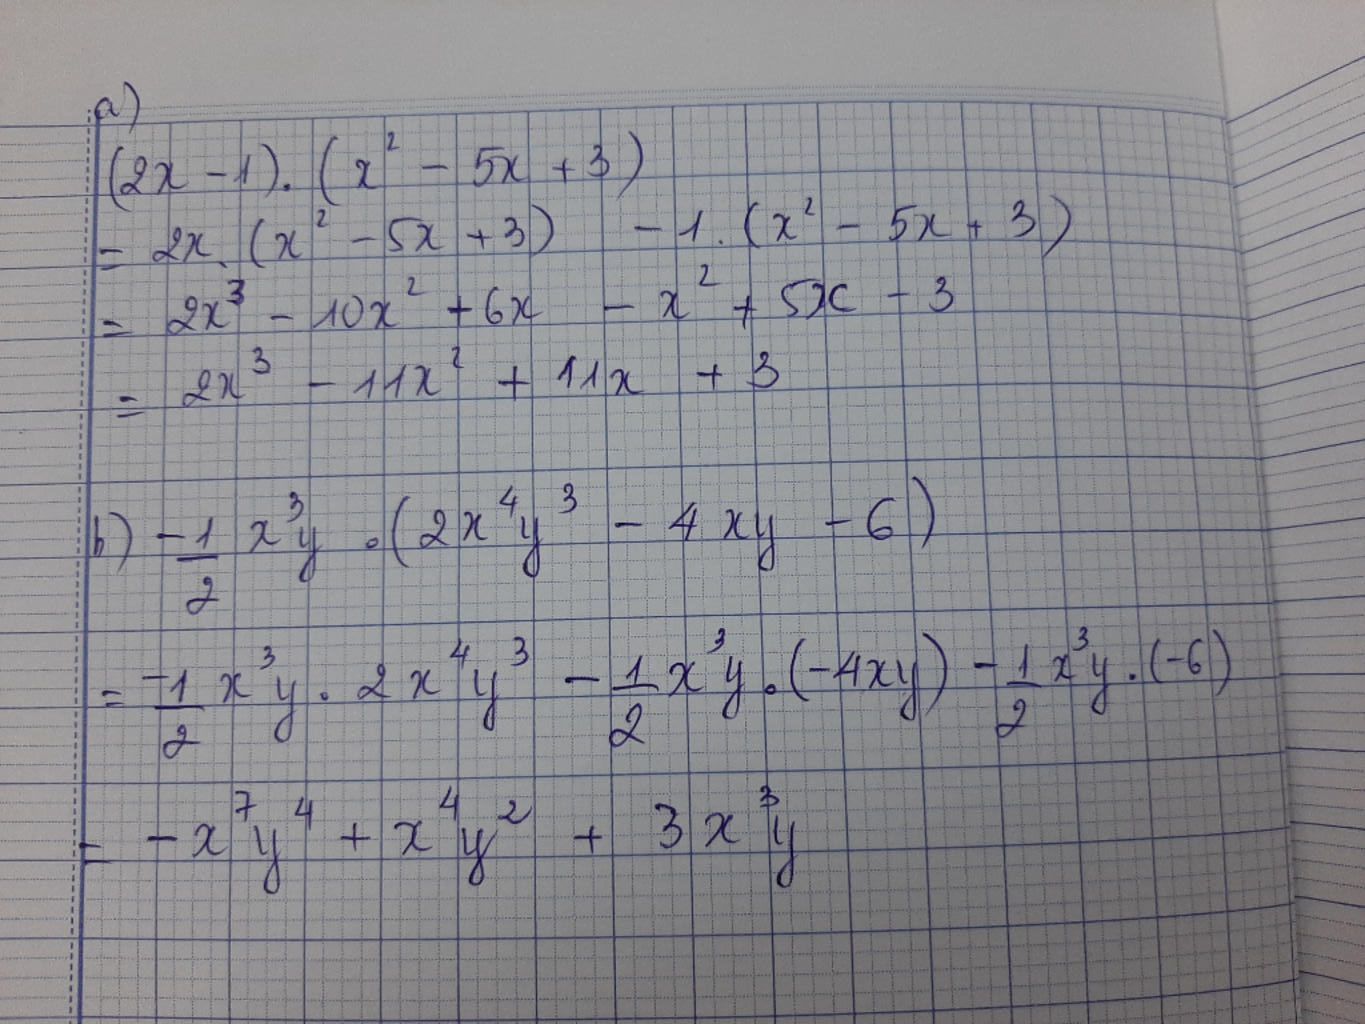 a)
(2x - 1). (x² - 5x + 3)
= 2x. (x² - 5x + 3) - 1. (x² - 5x + 3)
= 2x³ - 10x² + 6x - x² + 5x - 3
= 2x³ - 11x² + 11x + 3
b) -1/2 x³y . (2x⁴y³ - 4xy - 6)
= -1/2 x³y . 2x⁴y³ - 1/2 x³y . (-4xy) - 1/2 x³y . (-6)
= -x⁷y⁴ + x⁴y² + 3x³y